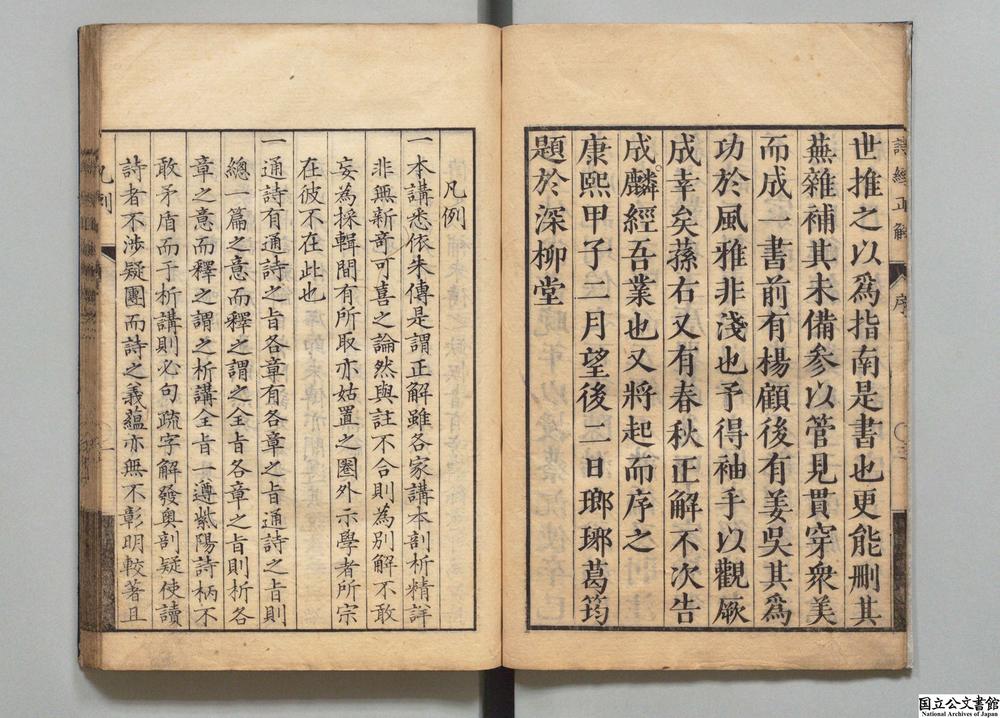 詩經正解
序
世推之以爲指南是書也更能刪其
蕪雜補其未備參以管見貫穿衆美
而成一書前有楊顧後有姜吳其爲
功於風雅非淺也予得袖手以觀厥
成幸矣蓀右又有春秋正解不次告
成麟經吾業也又將起而序之
康熙甲子二月望後二日瑯琊葛筠
題於深柳堂
凡例
一本講悉依朱傳是謂正解雖各家講本剖析精詳
非無新奇可喜之論然與註不合則為別解不敢
妄為採輯間有所取亦姑置之圈外示學者所宗
在彼不在此也
一通詩有通詩之旨各章有各章之旨通詩之旨則
總一篇之意而釋之謂之全旨各章之旨則析各
章之意而釋之謂之析講全旨一遵紫陽詩柄不
敢矛盾而于析講則必句疏字解發奧剖疑使讀
詩者不涉疑團而詩之義蘊亦無不彰明較著且
凡例
国立公文書館
National Archives of Japan